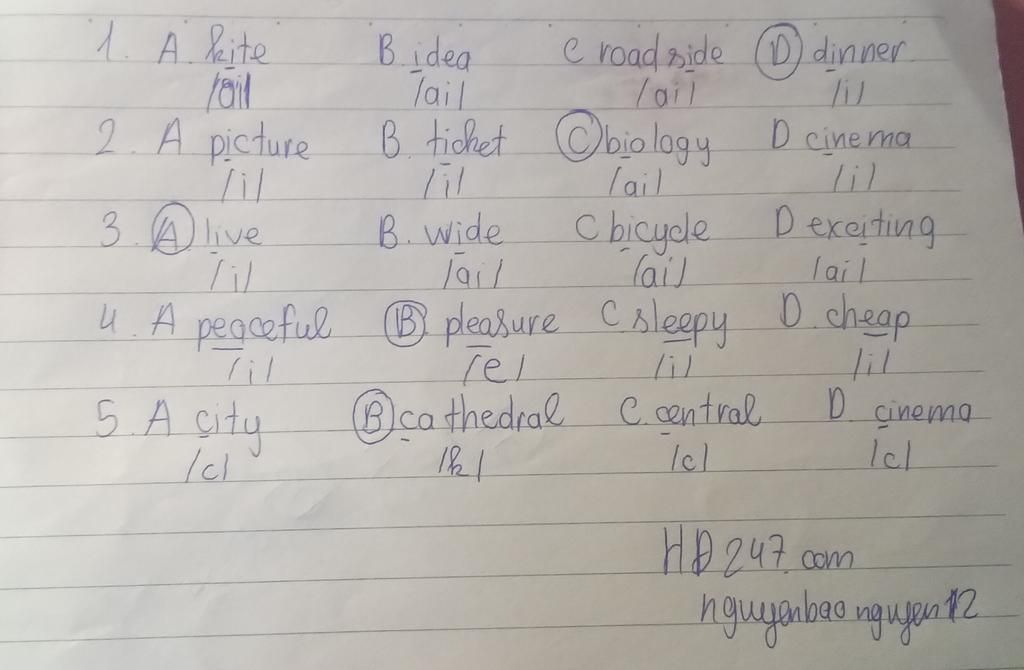 1. A. kite B. idea C roadside D dinner
/ai/ /ai/ /ai/ /i/
2. A picture B. ticket C biology D cinema
/i/ /i/ /ai/ /i/
3. A live B. wide C bicycle D exciting
/i/ /ai/ /ai/ /ai/
4. A peaceful B pleasure C sleepy D. cheap
/i/ /e/ /i/ /i/
5. A city B cathedral C. central D. cinema
/c/ /k/ /c/ /c/
HD247.com
nguyenbaonguyen12